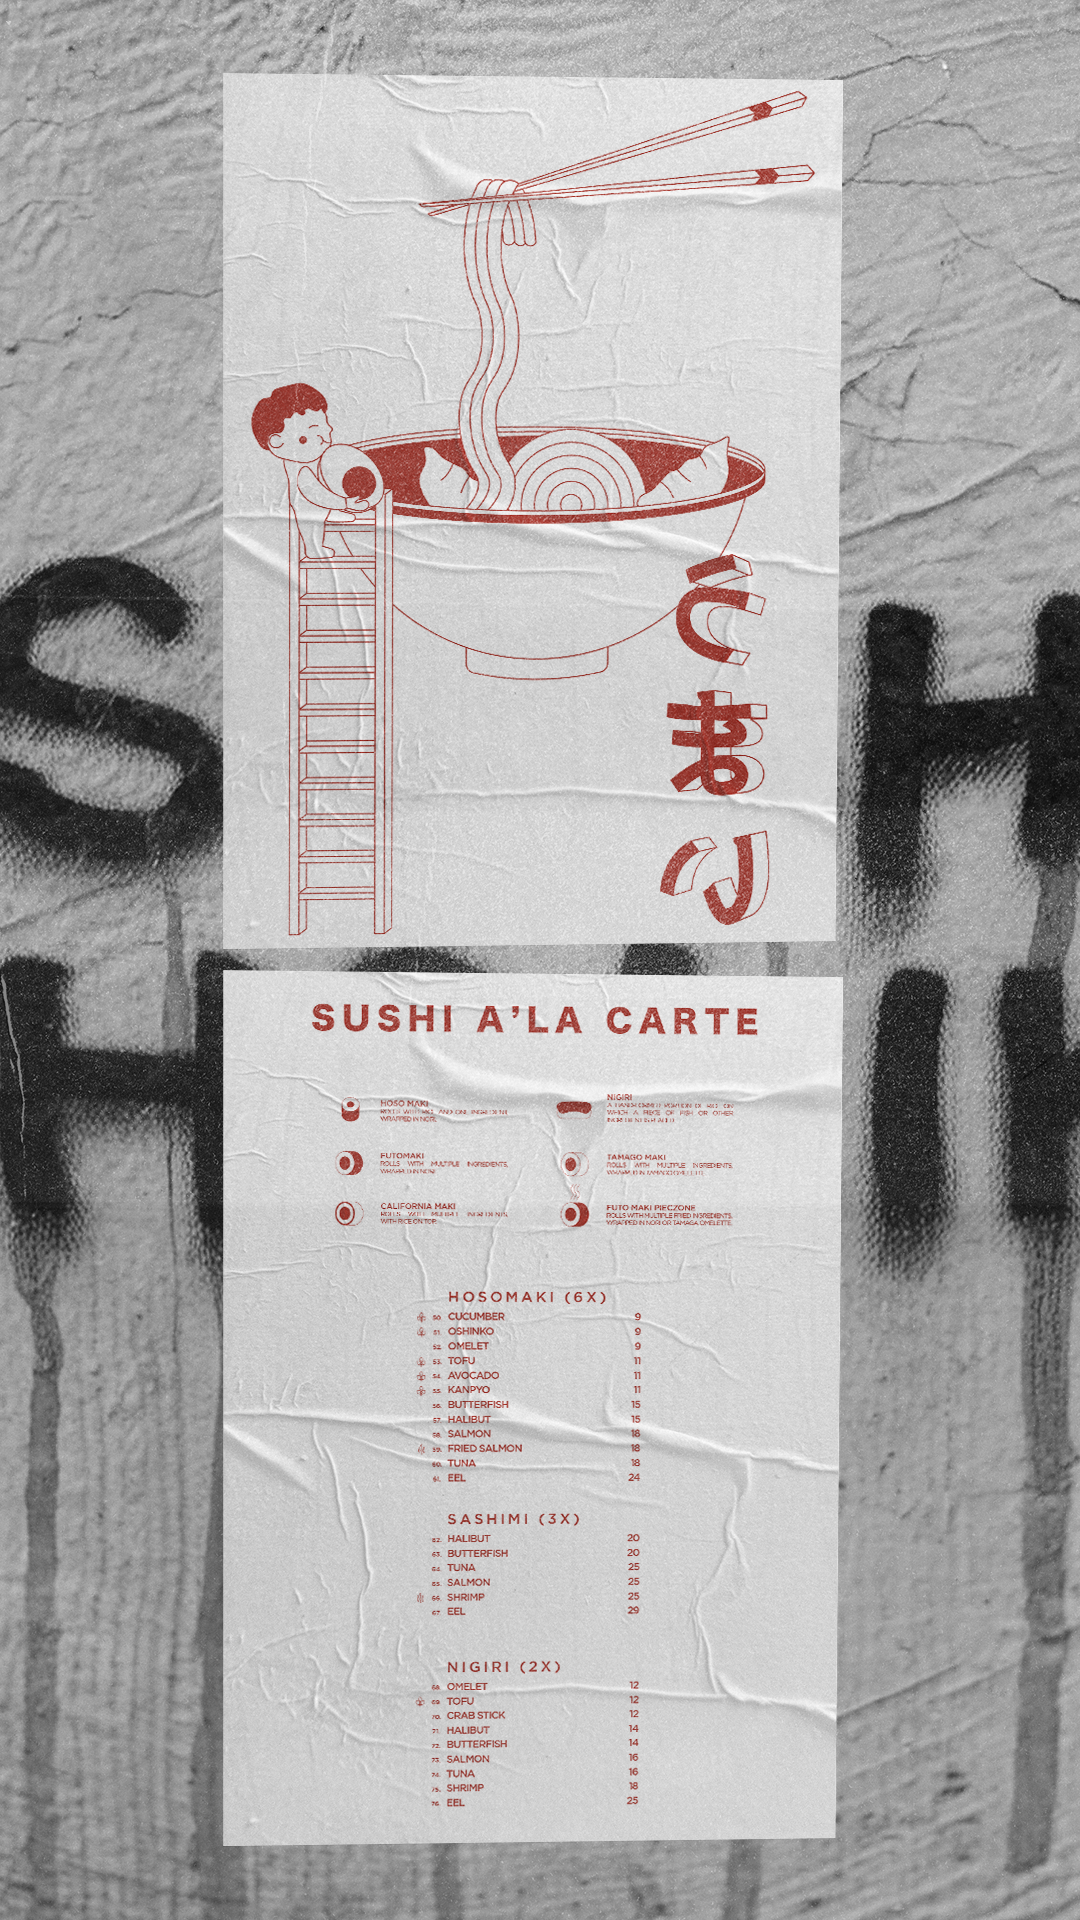 うまい
SUSHI A'LA CARTE
HOSO MAKI
ROLLS WITH RICE AND ONE INGREDIENT
WRAPPED IN NORI.
NIGIRI
A HAND-FORMED PORTION OF RICE ON
WHICH A PIECE OF FISH OR OTHER
INGREDIENT IS PLACED.
FUTOMAKI
ROLLS WITH MULTIPLE INGREDIENTS,
WRAPPED IN NORI.
TAMAGO MAKI
ROLLS WITH MULTIPLE INGREDIENTS,
WRAPPED IN TAMAGO OMELETTE.
CALIFORNIA MAKI
ROLLS WITH MULTIPLE INGREDIENTS,
WITH RICE ON TOP.
FUTO MAKI PIECZONE
ROLLS WITH MULTIPLE FRIED INGREDIENTS,
WRAPPED IN NORI OR TAMAGA OMELETTE.
HOSOMAKI (6X)
50. CUCUMBER 9
51. OSHINKO 9
52. OMELET 9
53. TOFU 11
54. AVOCADO 11
55. KANPYO 11
56. BUTTERFISH 15
57. HALIBUT 15
58. SALMON 18
59. FRIED SALMON 18
60. TUNA 18
61. EEL 24
SASHIMI (3X)
62. HALIBUT 20
63. BUTTERFISH 20
64. TUNA 25
65. SALMON 25
66. SHRIMP 25
67. EEL 29
NIGIRI (2X)
68. OMELET 12
69. TOFU 12
70. CRAB STICK 12
71. HALIBUT 14
72. BUTTERFISH 14
73. SALMON 16
74. TUNA 16
75. SHRIMP 18
76. EEL 25